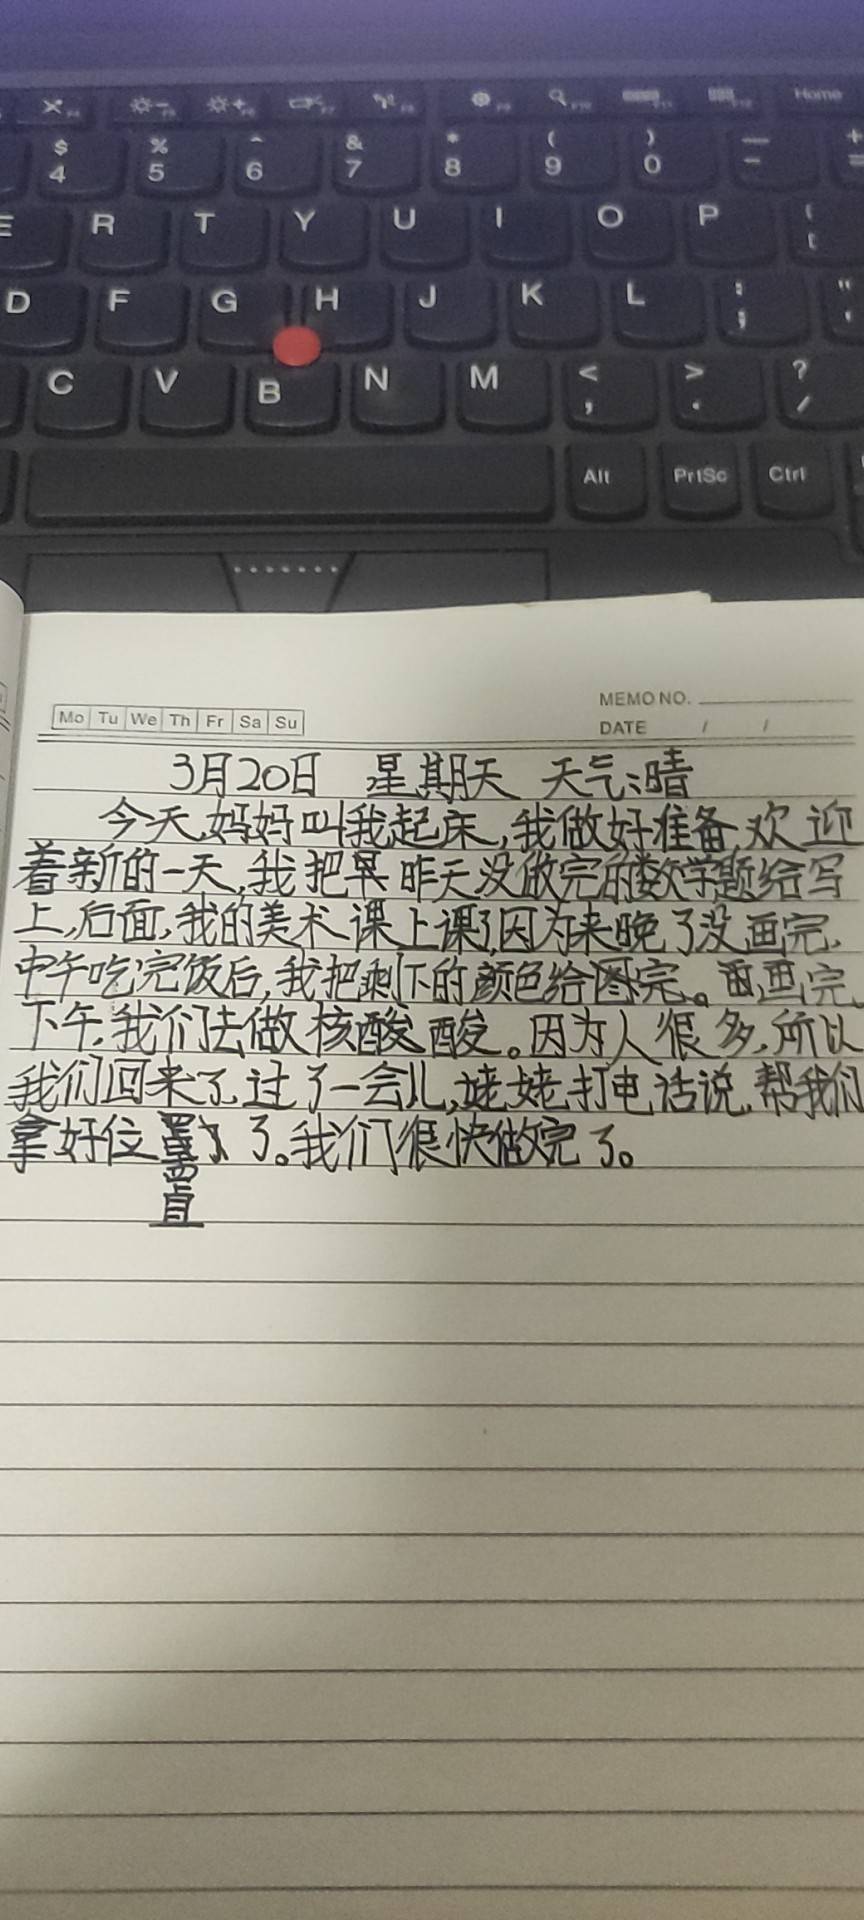 Home
$ % ^ & * ( ) — +
4 5 6 7 8 9 0 - =
E R T Y U I O P { [
D F G H J K L : ; " '
C V B N M < , > . ? /
Alt PrtSc Ctrl
MEMO NO.
Mo Tu We Th Fr Sa Su
DATE / /
3月20日 星期天 天气:晴
今天,妈妈叫我起床,我做好准备,欢迎
着新的一天,我把昨天没做完的数学题给写
上,后面,我的美术课上课了,因为来晚了没画完,
中午吃完饭后,我把剩下的颜色给图完。画完,
下午,我们去做核酸酸。因为人很多,所以
我们回来了,过了一会儿,姥姥打电话说,帮我们
拿好位置了。我们很快做完了。